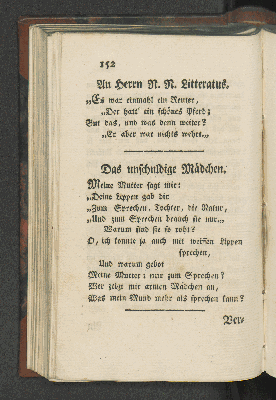 152
An Herrn N. N. Litteratus.
„Es war einmahl ein Reuter,
„Der hatt' ein schönes Pferd;
Gut das, und was denn weiter?
„Er aber war nichts wehrt...
Das unschuldige Mädchen.
Meine Mutter sagt mir:
„Deine Lippen gab dir
„Zum Sprechen, Tochter, die Natur,
„Und zum Sprechen brauch sie nur...
Warum sind sie so roth?
O, ich konnte ja auch mit weissen Lippen
sprechen,
Und warum gebot
Meine Mutter: nur zum Sprechen?
Wer zeigt mir armen Mädchen an,
Was mein Mund mehr als sprechen kann?
Ver-